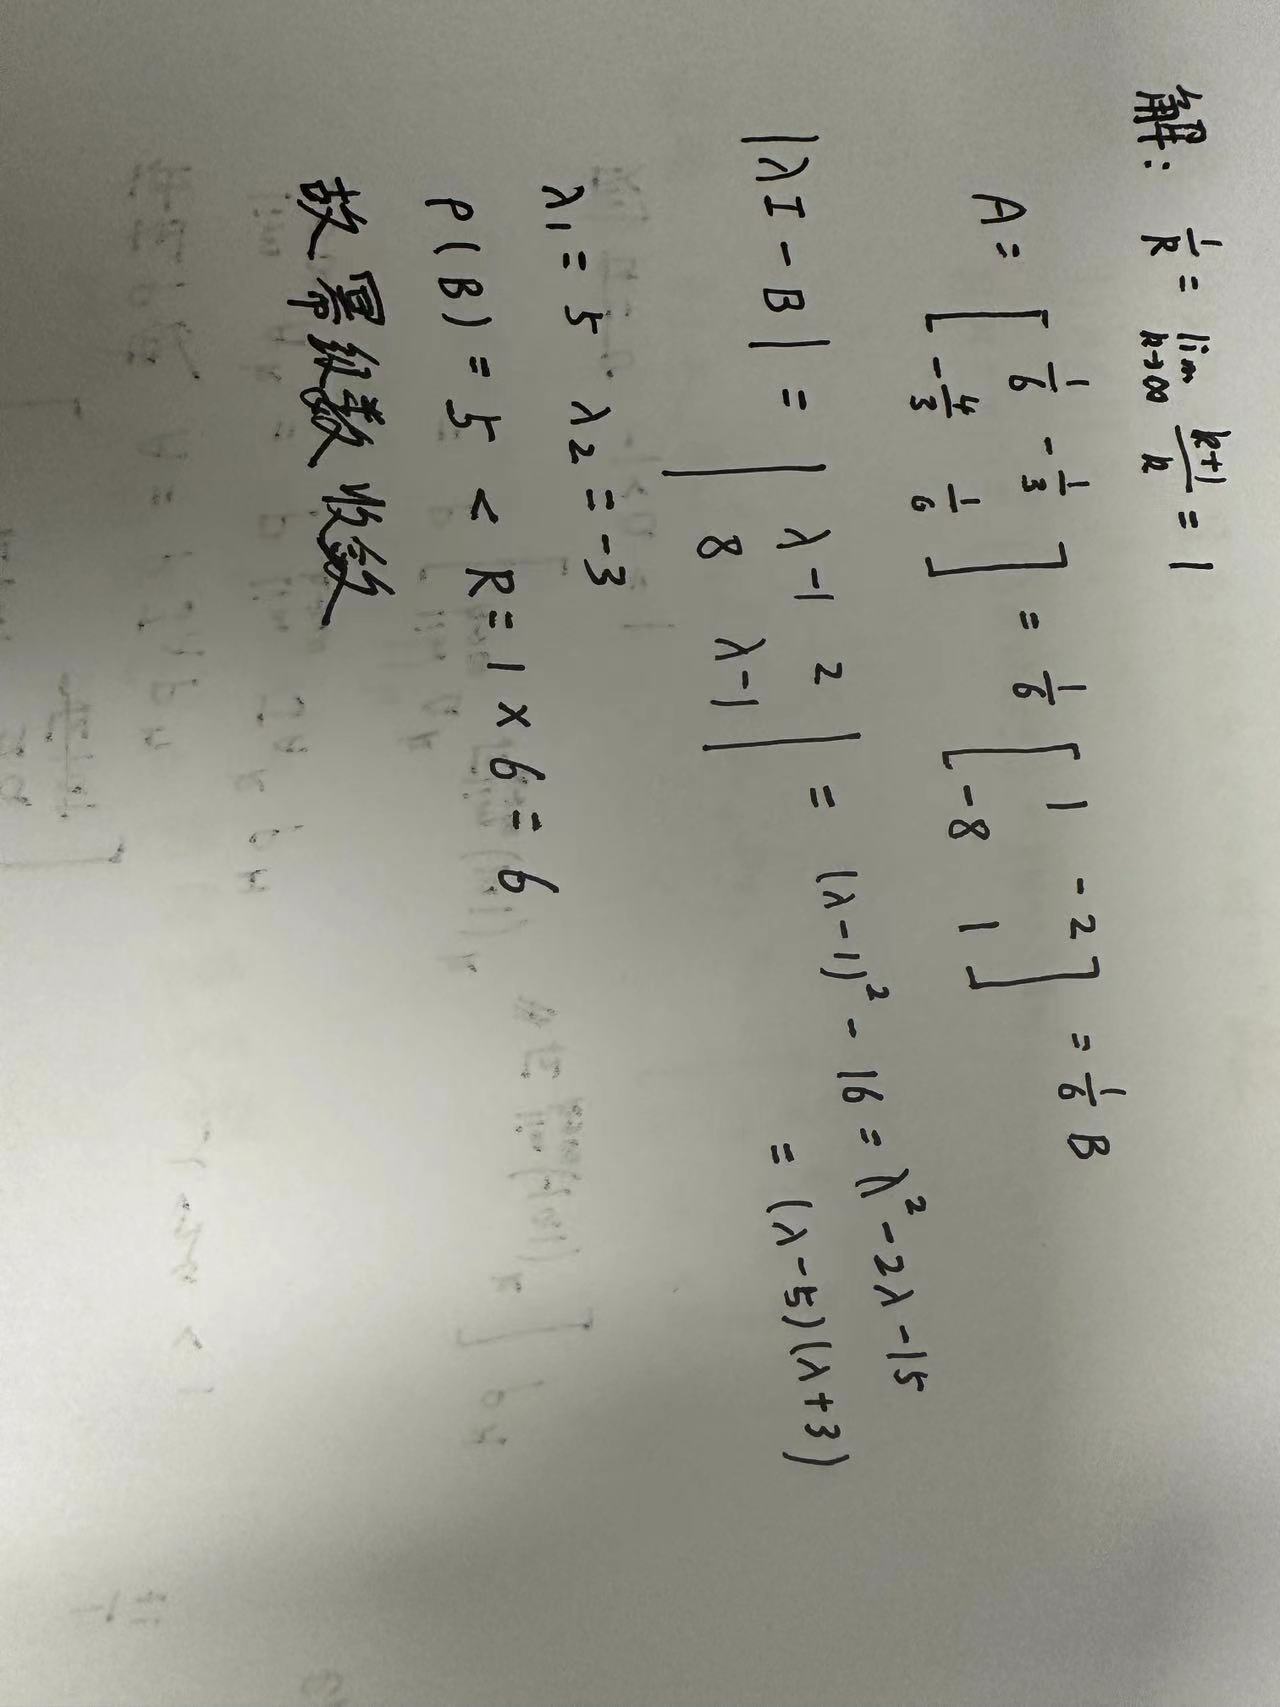 解: 1/R = lim k→∞ k+1/k = 1
A = [1/6 -1/3; -4/3 1/6] = 1/6 [1 -2; -8 1] = 1/6 B
|λI - B| = |λ-1 2; 8 λ-1| = (λ-1)² - 16 = λ² - 2λ - 15
= (λ-5)(λ+3)
λ₁ = 5 λ₂ = -3
ρ(B) = 5 < R = 1 × 6 = 6
故幂级数收敛